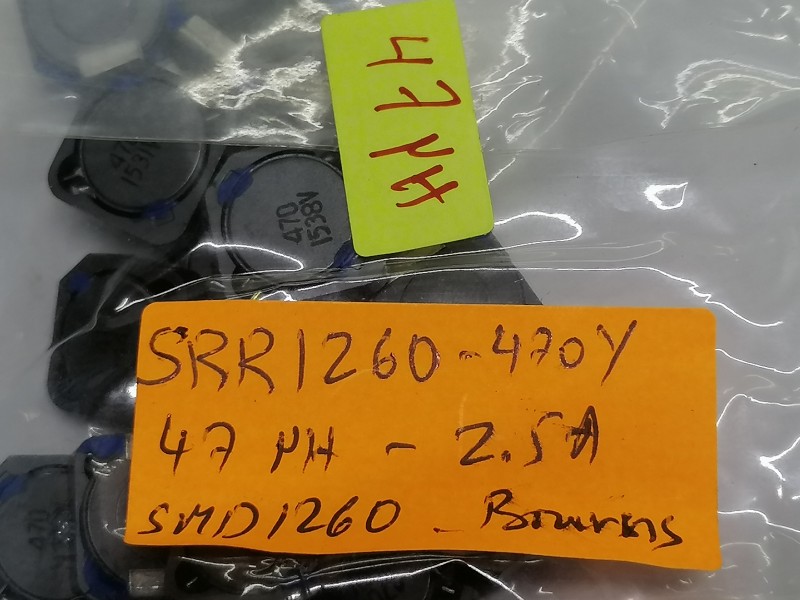 47 µH
470
1531
470
1538V
SRR1260-470Y
47 µH - 2.5A
SMD1260 - Bourns
470